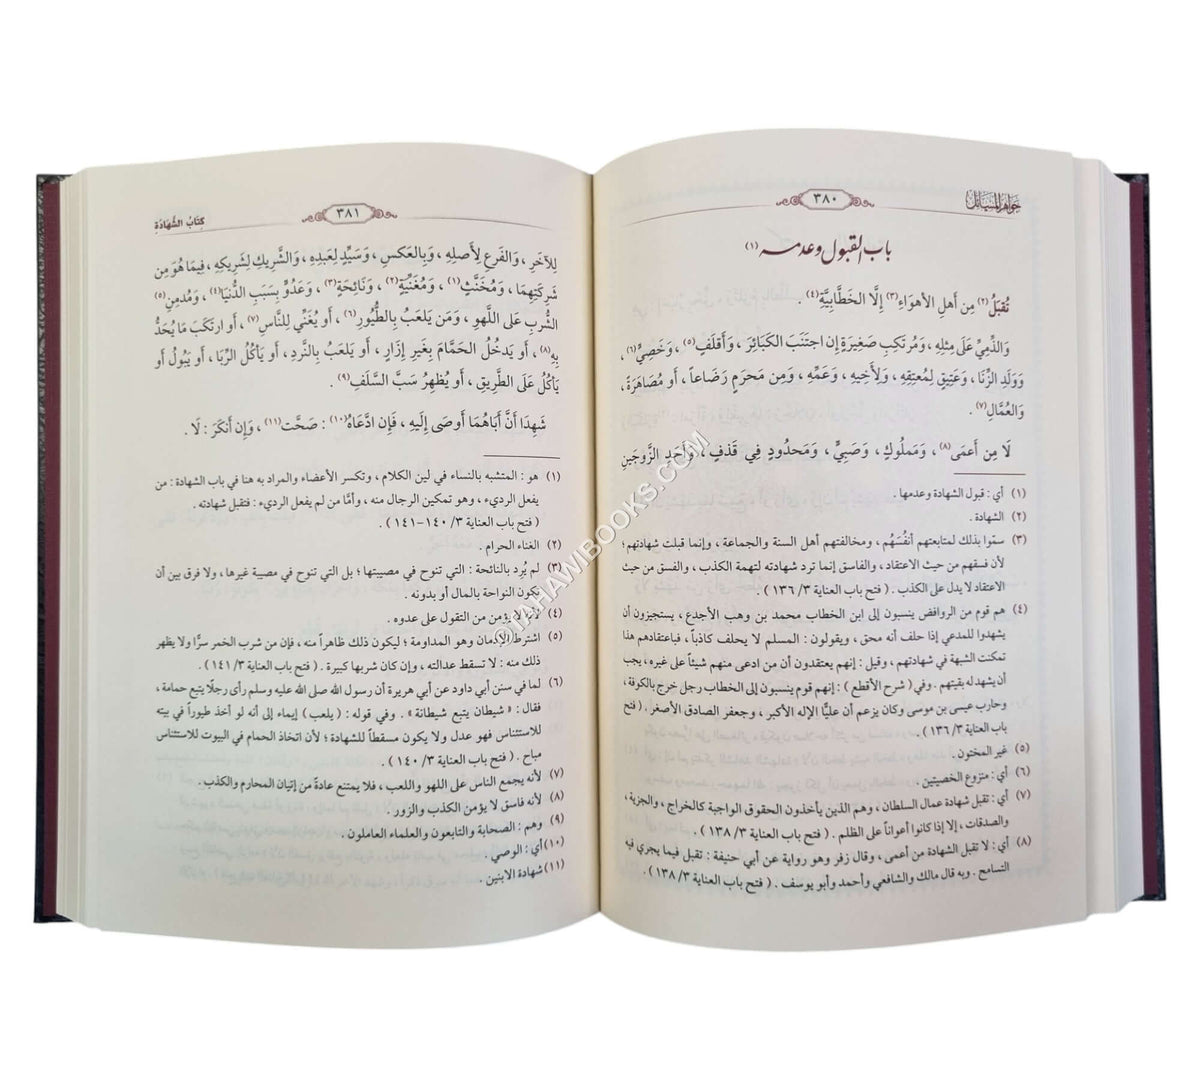 جواهر المسائل
٣٨٠
باب القبول وعدمه (١)
تُقبَلُ (٢) مِن أَهلِ الأهوَاءِ (٣) إِلَّا الخَطَّابِيَّةِ (٤) .
وَالذِّمِيِّ عَلَى مِثلِهِ ، وَمُرتَكِبِ صَغِيرَةٍ إِن اجتَنَبَ الكَبَائِرَ ، وَأَقلَفٍ (٥) ، وَخَصِيٍّ (٦) ،
وَوَلَدِ الزِّنَا ، وَعَتِيقٍ لِمُعتِقِهِ ، وَلِأَخِيهِ ، وَعَمِّهِ ، وَمِن مَحرَمٍ رَضَاعاً ، أَو مُصَاهَرَةً ،
وَالعُمَّالِ (٧) .
لَا مِن أَعمَى (٨) ، وَمَملُوكٍ ، وَصَبِيٍّ ، وَمَحدُودٍ فِي قَذفٍ ، وَأَحَدِ الزَّوجَينِ
(١) أي : قبول الشهادة وعدمها .
(٢) الشهادة .
(٣) سمّوا بذلك لمتابعتهم أنفُسَهُم ، ومخالفتهم أهل السنة والجماعة ، وإنما قبلت شهادتهم ؛
لأن فسقهم من حيث الاعتقاد ، والفاسق إنما ترد شهادته لتهمة الكذب ، والفسق من حيث
الاعتقاد لا يدل على الكذب . ( فتح باب العناية ٣/ ١٣٦ ) .
(٤) هم قوم من الروافض ينسبون إلى ابن الخطاب محمد بن وهب الأجدع ، يستجيزون أن
يشهدوا للمدعي إذا حلف أنه محق ، ويقولون : المسلم لا يحلف كاذباً ، فباعتقادهم هذا
تمكنت الشبهة في شهادتهم ، وقيل : إنهم يعتقدون أن من ادعى منهم شيئاً على غيره ، يجب
أن يشهد له بقيتهم . وفي ( شرح الأقطع ) : إنهم قوم ينسبون إلى الخطاب رجل خرج بالكوفة ،
وحارب عيسى بن موسى وكان يزعم أن عليًّا الإله الأكبر ، وجعفر الصادق الأصغر . ( فتح
باب العناية ٣/ ١٣٦ ) .
(٥) غير المختون .
(٦) أي : منزوع الخصيتين .
(٧) أي : تقبل شهادة عمال السلطان ، وهم الذين يأخذون الحقوق الواجبة كالخراج ، والجزية ،
والصدقات ، إلا إذا كانوا أعواناً على الظلم . ( فتح باب العناية ٣/ ١٣٨ ) .
(٨) أي : لا تقبل الشهادة من أعمى ، وقال زفر وهو رواية عن أبي حنيفة : تقبل فيما يجري فيه
التسامح . وبه قال مالك والشافعي وأحمد وأبو يوسف . ( فتح باب العناية ٣/ ١٣٨ ) .
٣٨١
كِتَابُ الشَّهَادَةِ
لِلآخَرِ ، وَالفَرعِ لِأَصلِهِ ، وَبِالعَكسِ ، وَسَيِّدٍ لِعَبدِهِ ، وَالشَّرِيكِ لِشَرِيكِهِ ، فِيمَا هُوَ مِن
شَرِكَتِهِمَا ، وَمُخَنَّثٍ (١) ، وَمُغَنِّيَةٍ (٢) ، وَنَائِحَةٍ (٣) ، وَعَدُوٍّ بِسَبَبِ الدُّنيَا (٤) ، وَمُدمِنِ (٥)
الشُّربِ عَلَى اللَّهوِ ، وَمَن يَلعَبُ بِالطُّيُورِ (٦) ، أَو يُغَنِّي لِلنَّاسِ (٧) ، أَو ارتَكَبَ مَا يُحَدُّ
بِهِ (٨) ، أَو يَدخُلُ الحَمَّامَ بِغَيرِ إِزَارٍ ، أَو يَلعَبُ بِالنَّردِ ، أَو يَأكُلُ الرِّبَا ، أَو يَبُولُ أَو
يَأكُلُ عَلَى الطَّرِيقِ ، أَو يُظهِرُ سَبَّ السَّلَفِ (٩) .
شَهِدَا أَنَّ أَبَاهُمَا أَوصَى إِلَيهِ ، فَإِن ادَّعَاهُ (١٠) : صَحَّت (١١) ، وَإِن أَنكَرَ : لَا .
(١) هو : المتشبه بالنساء في لين الكلام ، وتكسر الأعضاء والمراد به هنا في باب الشهادة : من
يفعل الرديء ، وهو تمكين الرجال منه ، وأمَّا من لم يفعل الرديء : فتقبل شهادته .
( فتح باب العناية ٣/ ١٤٠-١٤١ ) .
(٢) الغناء الحرام .
(٣) لم يُرِد بالنائحة : التي تنوح في مصيبتها ؛ بل التي تنوح في مصيبة غيرها ، ولا فرق بين أن
يكون النواحة بالمال أو بدونه .
(٤) لأنه لا يؤمن من التقول على عدوه .
(٥) اشترط الإدمان وهو المداومة ؛ ليكون ذلك ظاهراً منه ، فإن من شرب الخمر سرًّا ولا يظهر
ذلك منه : لا تسقط عدالته ، وإن كان شربها كبيرة . ( فتح باب العناية ٣/ ١٤١ ) .
(٦) لما في سنن أبي داود عن أبي هريرة أن رسول الله صلى الله عليه وسلم رأى رجلًا يتبع حمامة ،
فقال : « شيطان يتبع شيطانة » . وفي قوله : ( يلعب ) إيماء إلى أنه لو أخذ طيوراً في بيته
للاستئناس فهو عدل ولا يكون مسقطاً للشهادة ؛ لأن اتخاذ الحمام في البيوت للاستئناس
مباح . ( فتح باب العناية ٣/ ١٤٠ ) .
(٧) لأنه يجمع الناس على اللهو واللعب ، فلا يمتنع عادةً من إتيان المحارم والكذب .
(٨) لأنه فاسق لا يؤمن الكذب والزور .
(٩) وهم : الصحابة والتابعون والعلماء العاملون .
(١٠) أي : الوصي .
(١١) شهادة الابنين .
TAHAWIBOOKS.COM